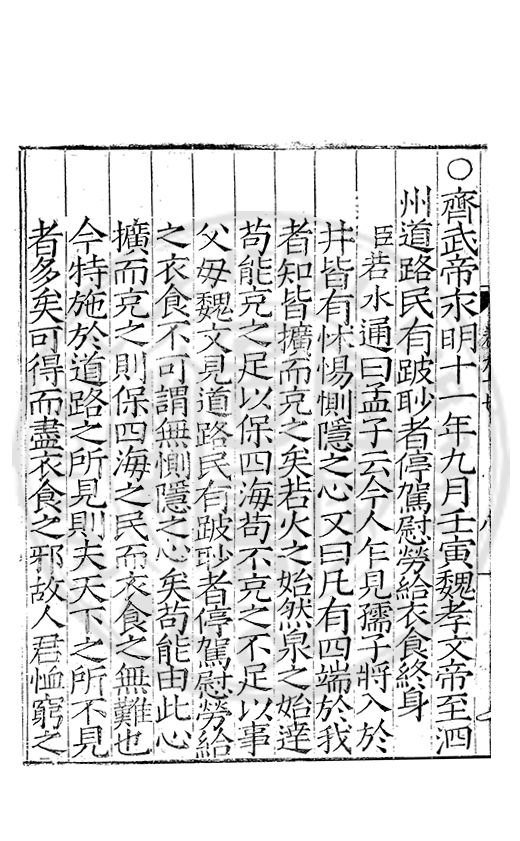 ○齊武帝永明十一年九月壬寅魏孝文帝至泗
州道路民有跛眇者停駕慰勞給衣食終身
臣若水通曰孟子云今人乍見孺子將入於
井皆有怵惕惻隱之心又曰凡有四端於我
者知皆擴而充之矣若火之始然泉之始達
苟能充之足以保四海苟不充之不足以事
父母魏文見道路民有跛眇者停駕慰勞給
之衣食不可謂無惻隱之心矣苟能由此心
擴而充之則保四海之民而衣食之無難也
今特施於道路之所見則夫天下之所不見
者多矣可得而盡衣食之邪故人君恤窮之